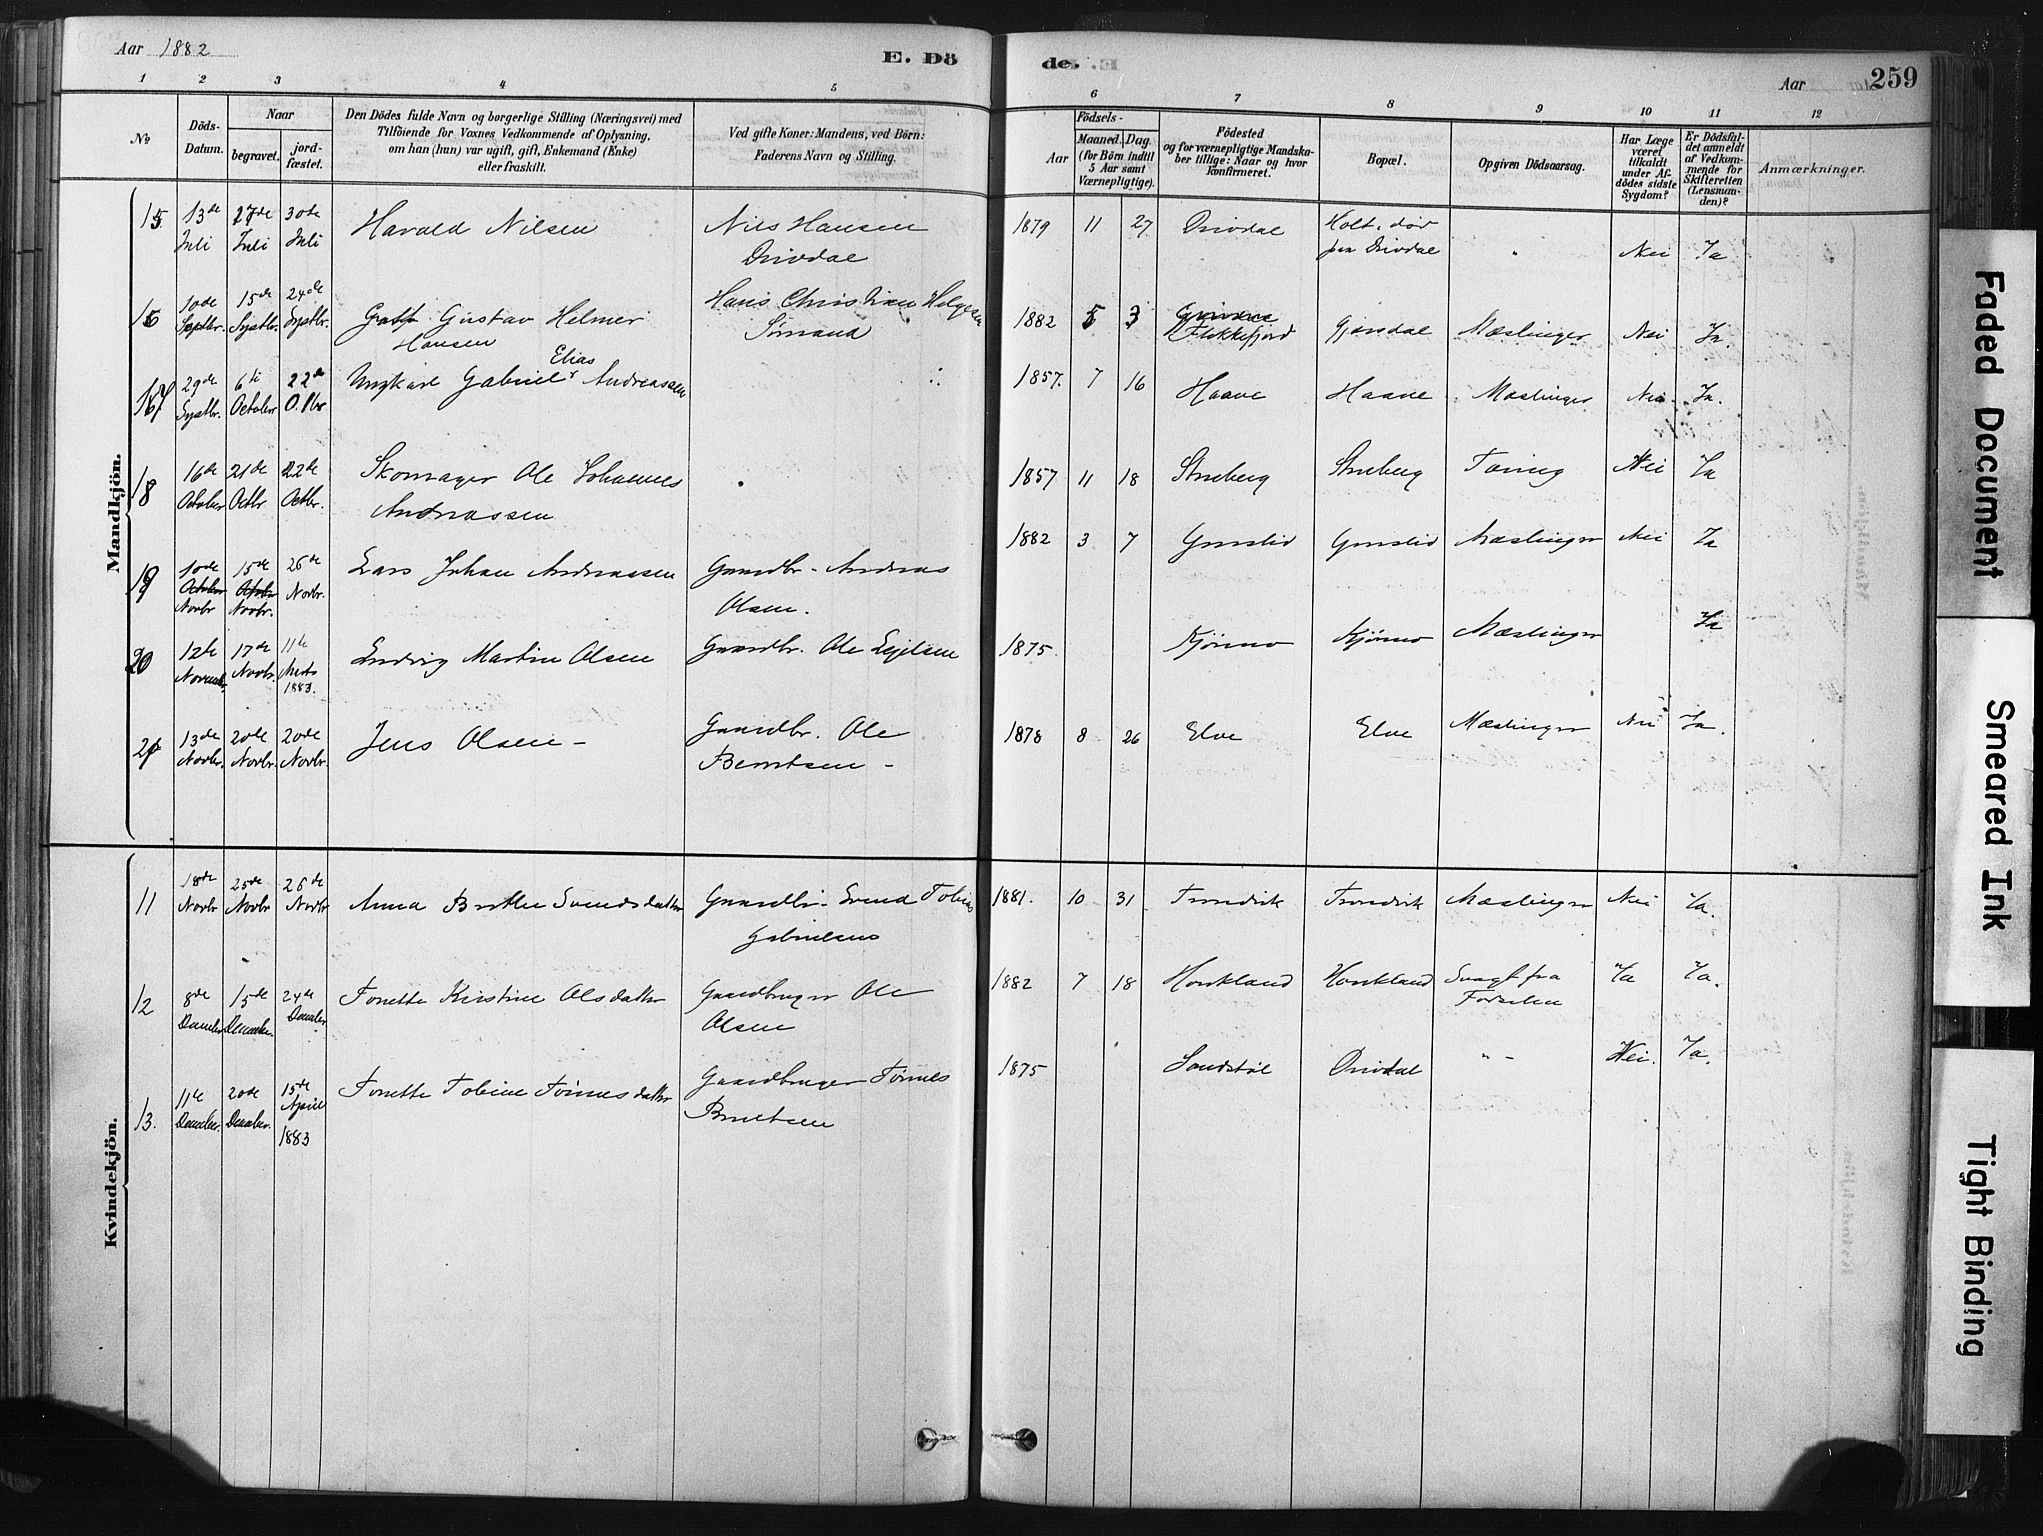 Aar 1882
E. Dö
de.
Aar
259
1 2 3 4 5 6 7 8 9 10 11 12
No.
Döds-Datum.
Naar
begravet.
jord-fæstet.
Den Dödes fulde Navn og borgerlige Stilling (Næringsvei) med
Tilföiende for Voxnes Vedkommende af Oplysning,
om han (hun) var ugift, gift, Enkemand (Enke)
eller fraskilt.
Ved gifte Koner: Mandens, ved Börn:
Faderens Navn og Stilling.
Födsels-
Aar
Maaned. Dag.
(for Börn indtil
5 Aar samt
Værnepligtige).
Födested
og for værnepligtige Mandska-
ber tillige: Naar og hvor
konfirmeret.
Bopæl.
Opgiven Dödsaarsag.
Har Læge
været
tilkaldt
under Af-
dödes sidste
Sygdom?
Er Dödsfal-
det anmeldt
af Vedkom-
mende for
Skifteretten
(Lensman-
den)?
Anmærkninger.
Mandkjön.
15 13de Juli 27de Juli 30de Juli Harald Nilsen Nils Hansen Drivdal 1879 11 27 Drivdal Holt, død paa Drivdal " Nei Ja
16 10de Septbr. 15de Septbr. 24de Septbr. Gustav Helmer Hansen Hans Christian Helgesen 1882 5 3 Flekkefjord Gjønsdal Mæslinger Nei Ja.
17 29de Septbr. 6te October 22de Ungkarl Gabriel Elias Andreassen 1857. 7 16 Haave Haave Mæslinger Nei Ja.
18 16de October 21de Octbr 22de Octbr. Skomager Ole Johannes Andreassen 1857 11 18 Struberg Struberg Tæring Nei Ja
19 10de October Novbr 15de Octbr Novbr. 26de Novbr. Lars Johan Andreassen Gaardbr. Andreas Olsen. 1882 3 7 Gunslid Gunslid Mæslinger Nei Ja
20 12te Novemb. 17de Novbr. 11te Marts 1883. Ludvig Martin Olsen Gaardbr. Ole Eyelsen 1875. Kjørmo Kjørmo Mæslinger Ja
21 13de Novbr. 20de Novbr. 20de Novbr. Jens Olsen - Gaardbr. Ole Berntsen - 1878 8 26 Elve Elve Mæslinger Nei Ja.
Kvindekjön.
11 18de Novbr 25de Novbr 26de Novbr Anna Berthe Svendsdatter Gaardbr. Svend Tobias Gabrielsens 1881. 10 31 Trondvik Trondvik Mæslinger Nei Ja.
12 8de December 15de December 24de December Tonette Kristine Olsdatter Gaardbruger Ole Olsen 1882 7 18 Honkland Honkland Svagt fra Fødselen Ja Ja.
13. 11te December. 20de December. 15de April 1883 Tonette Tobine Tønnesdatter Gaardbruger Tønnes Berntsen 1875 Sandstøl Drivdal " - Nei. Ja.
Faded Document
Smeared Ink
Tight Binding